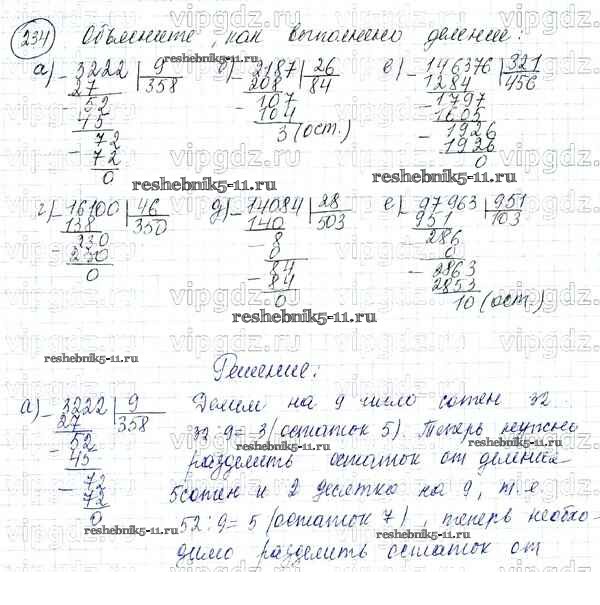 234 Объясните, как выполнено деление:
а) 3222 | 9 б) 2187 | 26 в) 146376 | 321
27 358 208 84 1284 456
52 107 1797
45 104 1605
72 3 (ост.) 1926
72 1926
0 0
reshebnik5-11.ru
г) 16100 | 46 д) 14084 | 28 е) 97963 | 951
138 350 140 503 951 103
230 8 286
230 0 0
0 84 2863
84 2853
0 10 (ост.)
reshebnik5-11.ru
reshebnik5-11.ru
Решение:
а) 3222 | 9 Делим на 9 число сотен 32
27 358 32:9=3 (остаток 5). Теперь нужно
52 разделить остаток от деления
45 5 сотен и 2 десятка на 9, т.е.
72 52:9=5 (остаток 7), теперь необхо-
72 димо разделить остаток от
0
reshebnik5-11.ru
vipgdz.ru